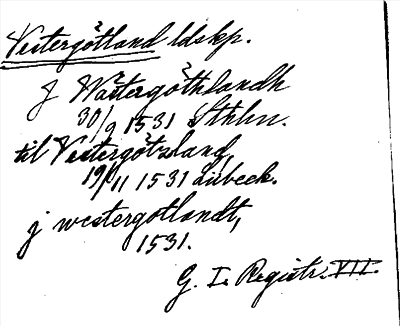 Vestergötland ldskp.
J Wästergöthlandh
30/9 1531 Sthlm.
til Vestergötzland,
19/11 1531 Lübeck.
j westergotlandt,
1531.
G. I. Registr. VII.